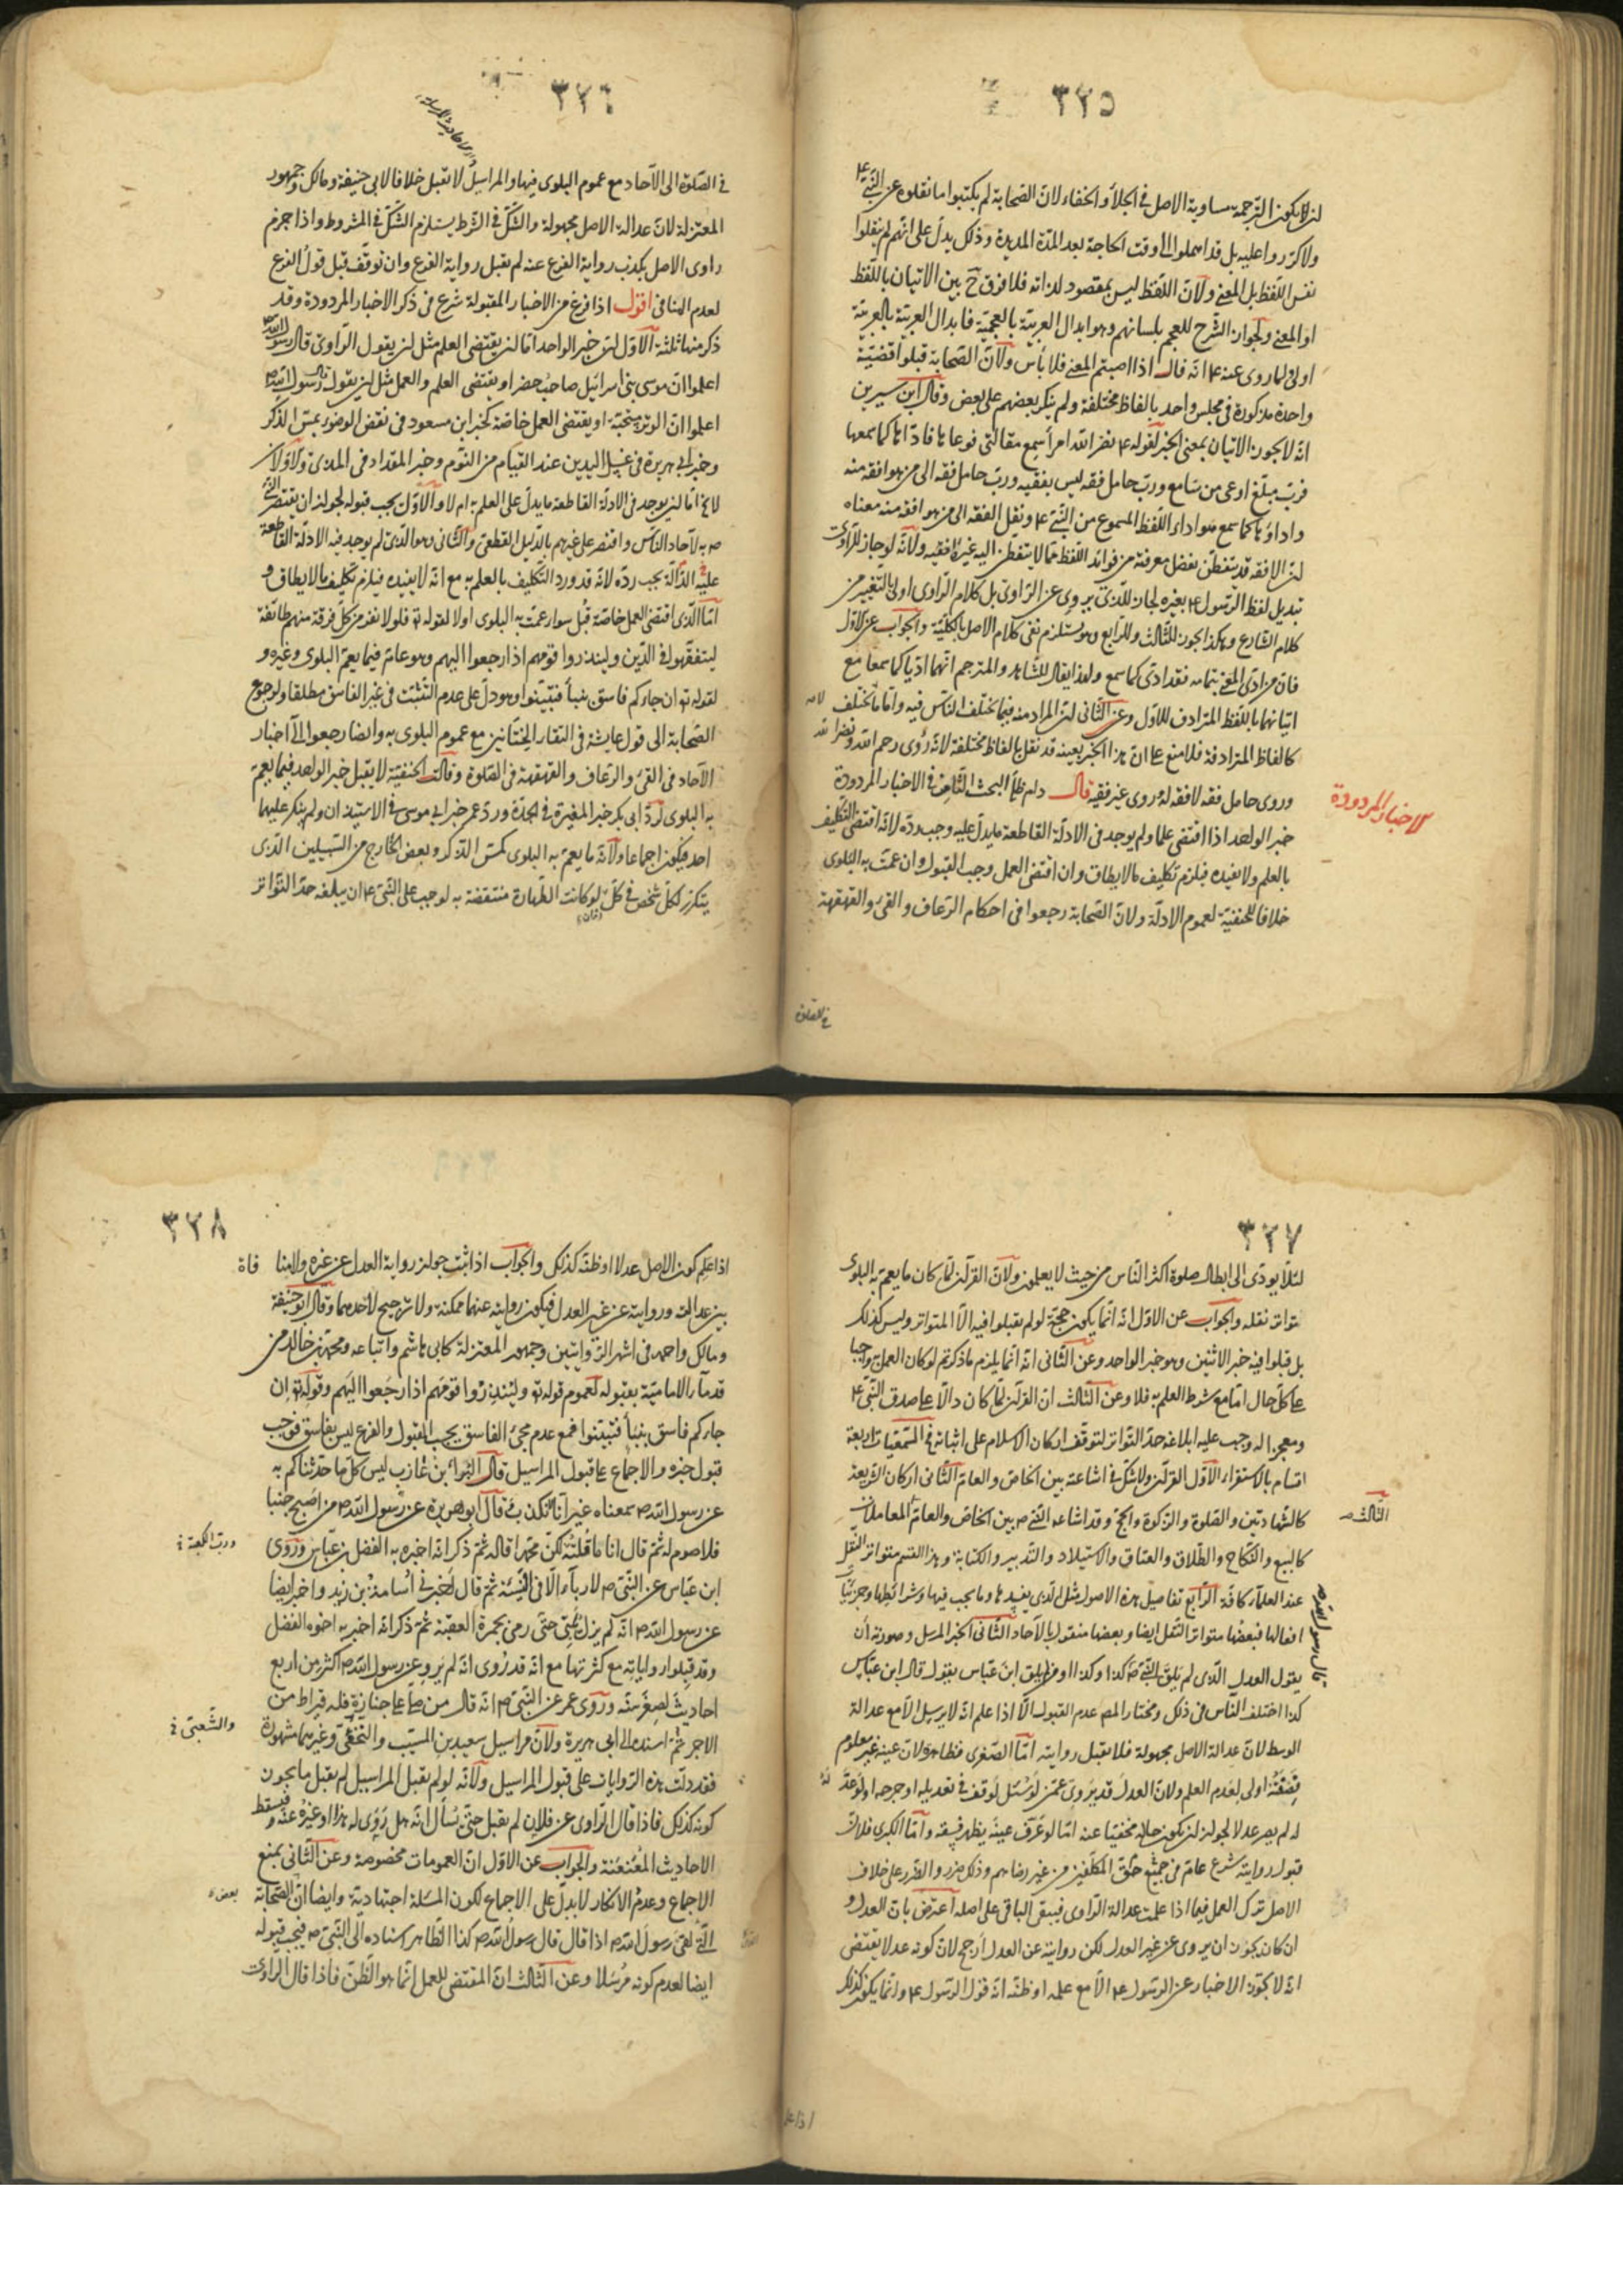 ٣٢٥
لا يكون الترجمة مساوية الاصل فى الجلاء والخفاء لان الصحابة لم يكتبوا ما نقلوه عن النبى ع
ولا كرروا عليه بل قد اهملوا الى وقت الحاجة بعد المدة المديدة وذلك يدل على انهم لم ينقلوا
نفس اللفظ بل المعنى ولان اللفظ ليس بمقصود لذاته فلا فرق ح بين الاتيان باللفظ
او المعنى ولجواز الشرح للعجم بلسانهم وهو ابدال العربية بالعجمية فابدال العربية بالعربية
اولى لما روى عنه ع انه قال اذا اصبتم المعنى فلا باس ولان الصحابة قبلوا قضية
واحدة مذكورة فى مجلس واحد بالفاظ مختلفة ولم ينكر بعضهم على بعض وقال ابن سيرين
انه لا يجوز الاتيان بمعنى الخبر لقوله ع نضر الله امرأ سمع مقالتى فوعاها فاداها كما سمعها
فرب مبلغ اوعى من سامع ورب حامل فقه ليس بفقيه ورب حامل فقه الى من هو افقه منه
واداؤها كما سمع هو اداء اللفظ المسموع من النبى ع ونقل الفقه الى من هو افقه منه معناه
ان الافقه قد يتفطن بفضل معرفته من فوائد اللفظ مما لا يتفطن اليه غير الفقيه ولانه لو جاز للراوى
تبديل لفظ الرسول ع بغيره لجاز للذى يروى عن الراوى بل كلام الراوى اولى بالتغيير من
كلام الشارع وهكذا يجوز للثالث وللرابع وهو يستلزم نفى كلام الاصل بالكلية والجواب عن الاول
فان من ادى المعنى بتمامه فقد ادى كما سمع ولهذا يقال للشاهد والمترجم انهما اديا كما سمعا مع
اتيانهما باللفظ المترادف للاول وعن الثانى ان المراد منه فيما يختلف الناس فيه واما ما لا يختلف
كالفاظ المترادفة فلا منع على ان هذا الخبر بعينه قد نقل بالفاظ مختلفة لانه روى رحم الله ونضر الله
وروى حامل فقه لا فقه له وروى غير فقيه قال دام ظله البحث الثامن فى الاخبار المردودة
خبر الواحد اذا اقتضى علما ولم يوجد فى الادلة القاطعة ما يدل عليه وجب رده لانه اقتضى التكليف
بالعلم ولا يفيده فيلزم تكليف ما لا يطاق وان اقتضى العمل وجب القبول وان عمت به البلوى
خلافا للحنفية لعموم الادلة ولان الصحابة رجعوا فى احكام الرعاف والقىء والقهقهة
الاخبار المردودة
فى الصلوة
٣٢٦
فى الصلوة الى الآحاد مع عموم البلوى فيها والمراسيل لا تقبل خلافا لابى حنيفة ومالك وجمهور
المعتزلة لان عدالة الاصل مجهولة والشك فى الشرط يستلزم الشك فى المشروط واذا جزم
راوى الاصل بكذب رواية الفرع عنه لم يقبل رواية الفرع وان توقف قبل قول الفرع
لعدم المنافى اقول اذا فرغ من الاخبار المقبولة شرع فى ذكر الاخبار المردودة وقد
ذكر منها ثلثة الاول ان خبر الواحد اما ان يقتضى العلم مثل ان يقول الراوى قال رسول الله ص
اعلموا ان موسى بنى اسرائيل صاحب خضر او يقتضى العلم والعمل مثل ان يقول قال رسول الله ص
اعلموا ان الوتر مستحبة او يقتضى العمل خاصة كخبر ابن مسعود فى نقض الوضوء بمس الذكر
وخبر ابى هريرة فى غسل اليدين عند القيام من النوم وخبر المقداد فى المذى والاولان
لا يخ اما ان يوجد فى الادلة القاطعة ما يدل على العلم به ام لا والاول يجب قبوله لجواز ان يقتصر
ص به لآحاد الناس واقتصر على غيرهم بالدليل القطعى والثانى وهو الذى لم يوجد فيه الادلة القاطعة
عليه الدالة يجب رده لانه قد ورد التكليف بالعلم به مع انه لا يفيده فيلزم تكليف ما لا يطاق و
اما الذى اقتضى العمل خاصة قبل سواء عمت به البلوى او لا لقوله تع فلولا نفر من كل فرقة منهم طائفة
ليتفقهوا فى الدين ولينذروا قومهم اذا رجعوا اليهم وهو عام فيما يعم البلوى وغيره و
لقوله تع ان جاءكم فاسق بنبأ فتبينوا وهو دل على عدم التثبت فى غير الفاسق مطلقا ولرجوع
الصحابة الى قول عايشة فى التقاء الختانين مع عموم البلوى به وايضا رجعوا الى اخبار
الآحاد فى القىء والرعاف والقهقهة فى الصلوة وقالت الحنفية لا يقبل خبر الواحد فيما يعم
به البلوى لرد ابى بكر خبر المغيرة فى الجدة ورد عمر خبر ابى موسى فى الاستيذان ولم ينكر عليهما
احد فيكون اجماعا ولان ما يعم به البلوى كمس الذكر وبعض الخارج من السبيلين الذى
يتكرر لكل شخص فى كل لو كانت الطهارة منتقضة به لوجب على النبى ع ان يبلغه حد التواتر
٣٢٧
لئلا يودى الى ابطال صلوة اكثر الناس من حيث لا يعلمون ولان القرآن لما كان ما يعم به البلوى
تواتر نقله والجواب عن الاول انه انما يكون حجة لو لم يقبلوا فيه الا المتواتر وليس كذلك
بل قبلوا فيه خبر الاثنين وهو خبر الواحد وعن الثانى انه انما يلزم ما ذكرتم لو كان العمل به واجبا
على كل حال اما مع شرط العلم به فلا وعن الثالث ان القرآن لما كان دالا على صدق النبى ع
ومعجزا له وجب عليه ابلاغه حد التواتر لتوقف اركان الاسلام على اثباته فى السمعيات اربعة
اقسام بالاستقراء الاول القرآن ولا شك فى اشاعته بين الخاص والعام الثانى اركان الشريعة
كالشهادتين والصلوة والزكوة والحج وقد اشاعه النبى ص بين الخاص والعام المعاملات
الثالث ص
كالبيع والنكاح والطلاق والعتاق والاستيلاد والتدبير والكتابة وهذا القسم متواتر النقل
عند العلماء كافة الرابع تفاصيل هذه الاصول مثل الذى يفسدها وما يجب فيها وشرائطها وجزئيات
افعالها فبعضها متواتر النقل ايضا وبعضها منقول بالآحاد الثانى الخبر المرسل وصورته ان
يقول العدل الذى لم يلق النبى ص كذا وكذا او من لم يلق ابن عباس يقول قال ابن عباس
قال رسول الله ص
كذا اختلف الناس فى ذلك ومختار المص عدم القبول الا اذا علم انه لا يرسل الا مع عدالة
الوسط لان عدالة الاصل مجهولة فلا يقبل روايته اما الصغرى فظاهرة لان عينه غير معلوم
فصفته اولى بعدم العلم ولان العدل قد يروى عمن لو سئل لوقف فى تعديله او جرحه او لو عد
له لم يصر عدلا لجواز ان يكون حاله مخفيا عنه اما لو عرف عينه يظهر فسقه واما الكبرى فلان
قبول روايته شرع عام فى حق المكلفين من غير رضاهم وذلك ضرر والضرر على خلاف
الاصل ترك العمل فيما اذا علمت عدالة الراوى فيبقى الباقى على اصله اعترض بان العدل و
ان كان يجوز ان يروى عن غير العدل لكن روايته عن العدل ارجح لان كونه عدلا يقتضى
انه لا يجوز الاخبار عن الرسول ع الا مع علمه او ظنه انه قول الرسول ع وانما يكون كذلك
اذا علم
٣٢٨
اذا علم كون الاصل عدلا او ظنه كذلك والجواب اذا ثبت جواز رواية العدل عن غيره ولا منافاة
بين عدالته وروايته عن غير العدل فيكون روايته عنهما ممكنة ولا ترجيح لاحدهما وقال ابو حنيفة
ومالك واحمد فى اشهر الروايتين وجمهور المعتزلة كابى هاشم واتباعه ومحمد بن خالد من
قدماء الامامية بقبوله لعموم قوله تع ولينذروا قومهم اذا رجعوا اليهم وقوله تع ان
جاءكم فاسق بنبأ فتبينوا فمع عدم مجىء الفاسق يجب القبول والفرع ليس بفاسق فوجب
قبول خبره والاجماع على قبول المراسيل قال البراء بن عازب ليس كل ما حدثناكم به
عن رسول الله ص سمعناه غير انا لا نكذب وقال ابو هريرة عن رسول الله ص من اصبح جنبا
فلا صوم له ثم قال انا ما قلته لكن محمدا قاله ثم ذكر انه اخبره به الفضل بن عباس وروى
ورب الكعبة
ابن عباس عن النبى ص لا رباء الا فى النسيئة ثم قال اخبرنى اسامة بن زيد واخبر ايضا
عن رسول الله ص انه لم يزل يلبى حتى رمى بجمرة العقبة ثم ذكر انه اخبر به اخوه الفضل
وقد قبلوا رواياته مع كثرتها مع انه قد روى انه لم يرو عن رسول الله ص اكثر من اربع
احاديث لصغر سنه وروى عمر عن النبى ص انه قال من صلى على جنازة فله قيراط من
الاجر ثم اسنده الى ابى هريرة ولان مراسيل سعيد بن المسيب والنخعى وغيرهما مشهورة
والشعبى
فقد دلت هذه الروايات على قبول المراسيل ولانه لو لم يقبل المراسيل لم يقبل ما يجوز
كونه كذلك فاذا قال الراوى عن فلان لم يقبل حتى نسأل انه هل روى له هذا او غيره عنه وفيسقط
الاحاديث المعنعنة والجواب عن الاول ان العمومات مخصوصة وعن الثانى بمنع
الاجماع وعدم الانكار لا يدل على الاجماع لكون المسئلة اجتهادية وايضا ان الصحابة
بعض
الذى لقى رسول الله ص اذا قال قال رسول الله ص كذا الظاهر اسناده الى النبى ص فيجب قبوله
ايضا لعدم كونه مرسلا وعن الثالث ان المقتضى للعمل انما هو الظن فاذا قال الراوى